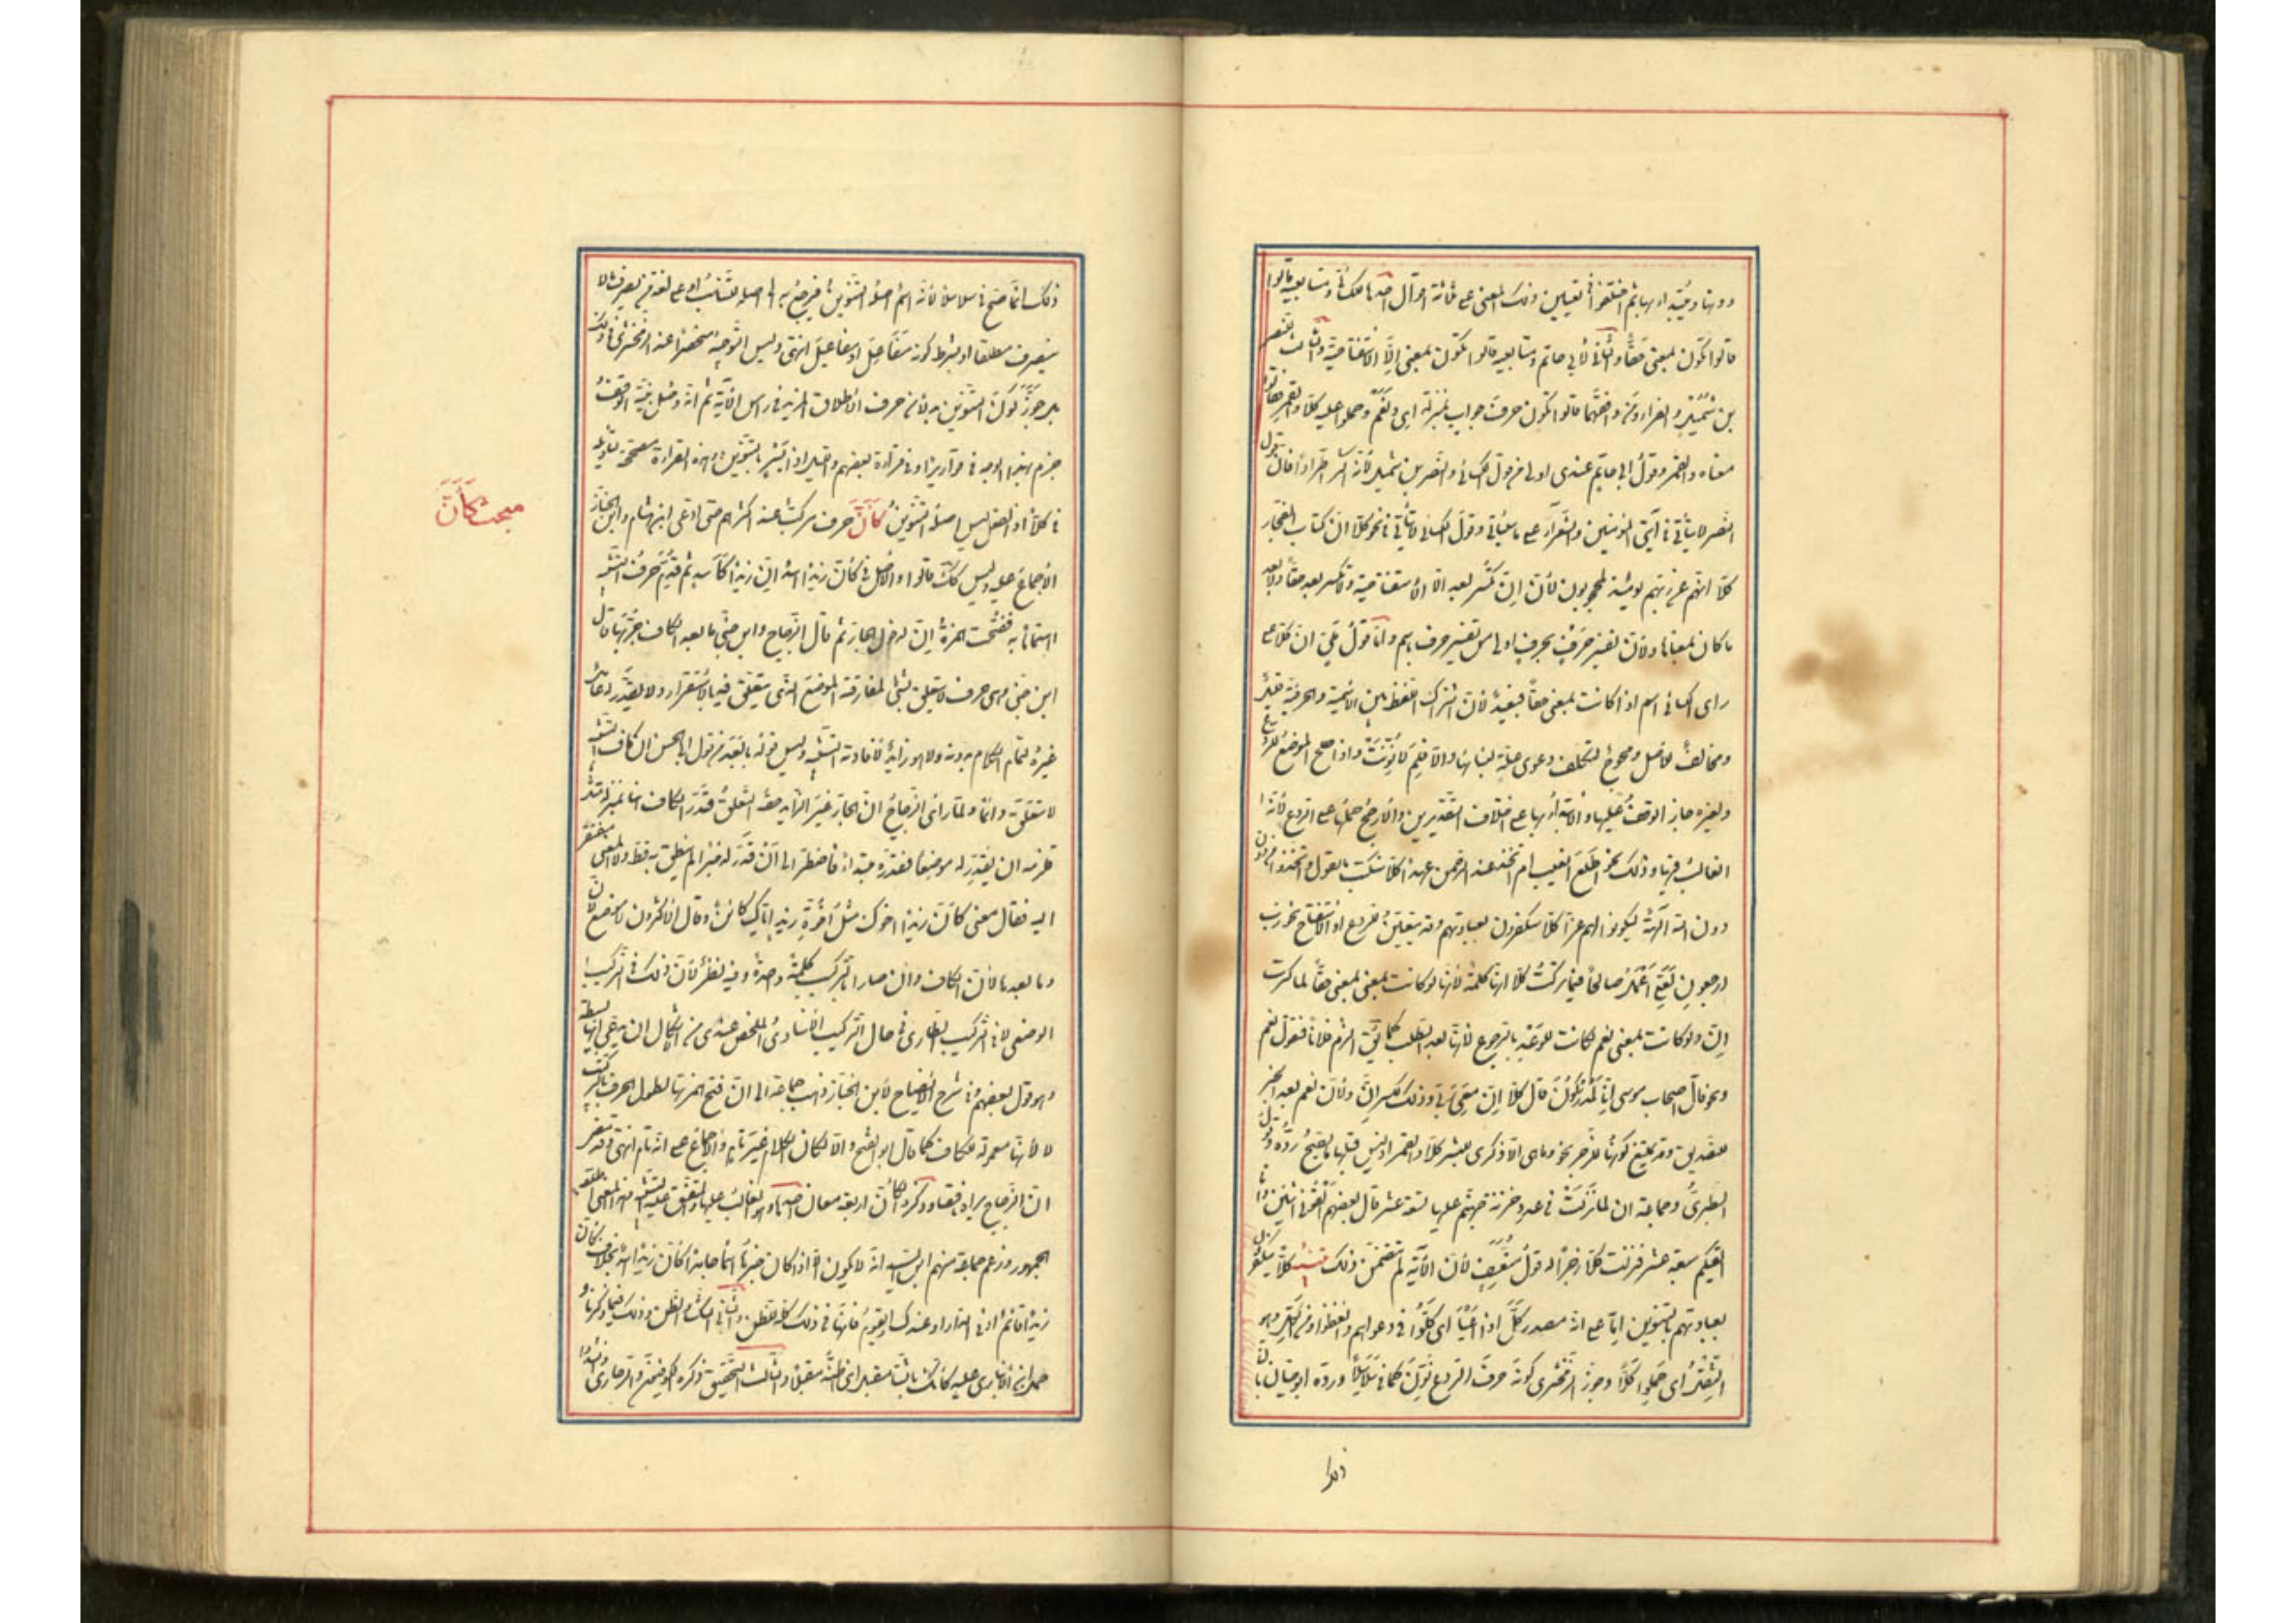 دونها ويبتدأ بها ثم اختلفوا في تعيين ذلك المعنى على ثلثة اقوال احدها للكسائي ومتابعيه قالوا
قالوا تكون بمعنى حقًّا والثاني لأبي حاتم ومتابعيه قالوا تكون بمعنى الا الاستفتاحية والثالث للنضر
بن شميل والفراء ومن وافقهما قالوا تكون حرف جواب بمنزلة اي ونعم وحملوا عليه كلا والقمر فقالوا
معناه والقمر وقول ابي حاتم عندي اولى من قول الكسائي والنضر بن شميل لأنه اكثر اطرادًا فان قول
النضر لا يتأتى في آيتي المؤمنين والشعراء على ما سيأتي وقول الكسائي لا يتأتى في نحو كلا ان كتاب الفجار
كلا انهم عن ربهم يومئذ لمحجوبون لأن إنّ تكسر بعد الا الاستفتاحية ولا تكسر بعد حقًّا ولا بعد
ما كان بمعناها ولأن تفسير حرف بحرف اولى من تفسير حرف باسم واما قول مكي ان كلا على
رأى الكسائي اسم اذا كانت بمعنى حقًّا فبعيد لأن اشتراك اللفظ بين الاسمية والحرفية قليل
ومخالف للأصل ومحوج لتكلف دعوى علة لبنائها والا فلم لا نونت واذا صلح الموضع للردع
ولغيره جاز الوقف عليها والابتداء بها على اختلاف التقديرين والأرجح حملها على الردع لأنه
الغالب فيها وذلك نحو اطلع الغيب ام اتخذ عند الرحمن عهدًا كلا سنكتب ما يقول واتخذوا من
دون الله آلهة ليكونوا لهم عزا كلا سيكفرون بعبادتهم وقد يتعين للردع او الاستفتاح نحو رب
ارجعون لعلي اعمل صالحًا فيما تركت كلا انها كلمة لأنها لو كانت بمعنى حقًّا لما كسرت
إنّ ولو كانت بمعنى نعم لكانت للوعد بالرجوع لأنها بعد الطلب كما يق اكرم فلانًا فتقول نعم
ونحو قال اصحاب موسى انا لمدركون قال كلا ان معي ربي وذلك لكسر إنّ ولأن نعم بعد الخبر
للتصديق وقد يمتنع كونها للزجر نحو وما هي الا ذكرى للبشر كلا والقمر اذ ليس قبلها ما يصح رده وقول
الطبري وجماعة انه لما نزلت في عدد خزنة جهنم عليها تسعة عشر قال بعضهم اكفوني اثنين وانا
اكفيكم سبعة عشر فنزلت كلا زجرًا له قول متعسف لأن الآية لم تتضمن ذلك تنبيه كلا سيكفرون
بعبادتهم بالتنوين اما على انه مصدر كلّ اذا اعيا اي كلوا في دعواهم وانقطعوا او من الكل وهو
الثقل اي حملوا كلا وجوز الزمخشري كونه حرف الردع نون كما في سلاسلا ورده ابو حيان بان
ذلك
ذلك انما صح في سلاسلا لأنه اسم اصله التنوين فرجع به الى اصله للتناسب او على لغة من يصرف ما لا
ينصرف مطلقا او بشرط كونه مفاعل او مفاعيل انتهى وليس التوجيه منحصرًا عند الزمخشري في ذلك
بل جوز كون التنوين بدلا من حرف الاطلاق المزيد في رأس الآية ثم انه وصل بنية الوقف
جزم بهذا الوجه في قواريرا وفي قراءة بعضهم والليل اذا يسر بالتنوين وهذه القراءة مصححة لتأويله
في كلا اذ الفعل ليس اصله التنوين كأنّ حرف مركب عند اكثرهم حتى ادعى ابن هشام وابن الخباز
مبحث كأنّ
الاجماع عليه وليس كك قالوا والاصل في كأن زيدًا اسد ان زيدًا كأسد ثم قدم حرف التشبيه
اهتمامًا به ففتحت همزة ان لدخول الجار ثم قال الزجاج وابن جني ما بعد الكاف جر بها قال
ابن جني وهي حرف لا يتعلق بشيء لمفارقته الموضع الذي يتعلق فيه بالاستقرار ولا يقدر له عامل
غيره لتمام الكلام بدونه ولا هو زايد لافادته التشبيه وليس قوله بابعد من قول ابي الحسن ان كاف التشبيه
لا تتعلق دائمًا ولما رأى الزجاج ان الجار غير الزايد حقه التعلق قدر الكاف هنا بمنزلة مثل
فلزمه ان يقدر له موضعًا فقدره مبتدأ فاضطر الى ان قدر له خبرًا لم ينطق به قط ولا المعنى مفتقر
اليه فقال معنى كأن زيدًا اخوك مثل اخوة زيد اياك كائن وقال الاكثرون لا موضع لأن
وما بعدها لأن الكاف وان صارا بالتركيب كلمة واحدة وفيه نظر لأن ذلك في التركيب
الوضعي لا في التركيب الطاري في حال التركيب الاسنادي المخلص عندي من الاشكال ان يدعى انها بسيطة
وهو قول بعضهم وفي شرح الايضاح لابن الخباز ذهب جماعة الى ان فتح همزتها لطول الحرف بالتركيب
لا لأنها معمولة للكاف كما قال ابو الفتح والا لكان الكلام غير تام والاجماع على انه تام انتهى وقد مضى
ان الزجاج يراه ناقصًا وذكروا لكأن اربعة معان احدها وهو الغالب عليها والمتفق عليه التشبيه وهذا المعنى اطلقه
الجمهور وزعم جماعة منهم ابن السيد انه لا يكون الا اذا كان خبرها اسمًا جامدًا كأن زيدًا اسد بخلاف كأن
زيدًا قائم او في الدار او عندك او يقوم فانها في ذلك كله للظن والثاني الشك والظن وذلك فيما ذكرنا و
حمل ابن الانباري عليه كأنك بالشتاء مقبل اي اظنه مقبلا والثالث التحقيق ذكره الكوفيون والزجاجي وانشدوا